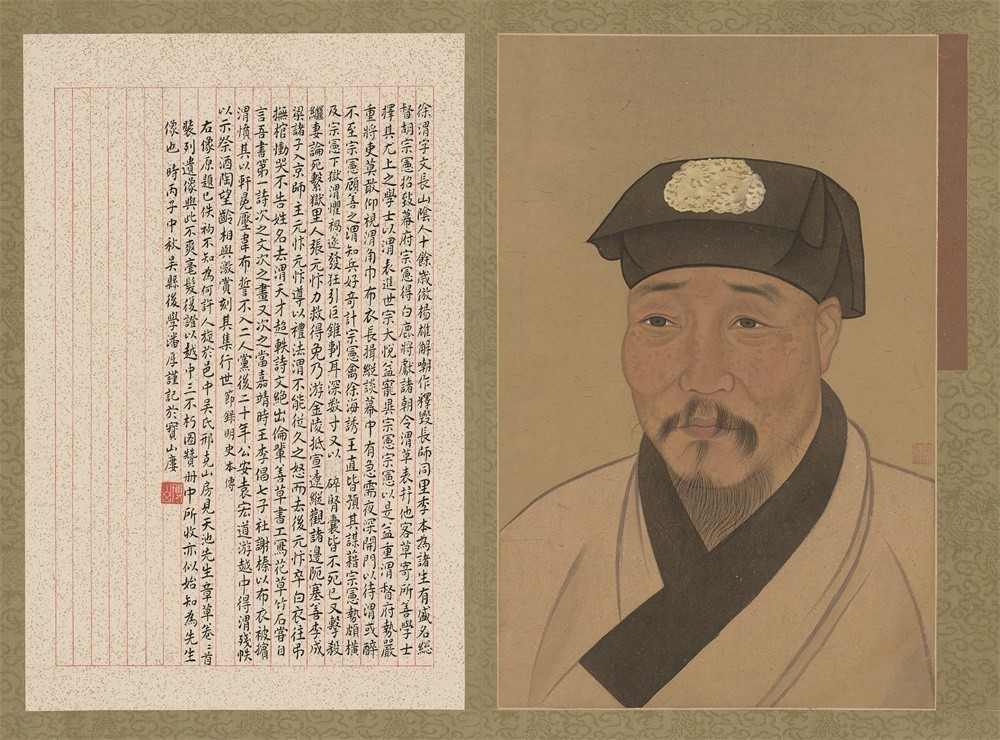 徐渭字文長山陰人十餘歲倣楊雄解嘲作釋毀長師同里季本為諸生有盛名總
督胡宗憲招致幕府宗憲得白鹿將獻諸朝令渭草表并他客草寄所善學士
擇其尤上之學士以渭表進世宗大悅益寵異宗憲宗憲以是益重渭督府勢嚴
重將吏莫敢仰視渭角巾布衣長揖縱談幕中有急需夜深開門以待渭或醉
不至宗憲顧善之渭知兵好奇計宗憲禽徐海誘王直皆預其謀藉宗憲勢頗橫
及宗憲下獄渭懼禍遂發狂引巨錐剚耳深數寸又以 碎腎囊皆不死已又擊殺
繼妻論死繫獄里人張元忭力救得免乃游金陵抵宣遼縱觀諸邊阨塞善李成
梁諸子入京師主元忭元忭導以禮法渭不能從久之怒而去後元忭卒白衣往弔
撫棺慟哭不告姓名去渭天才超軼詩文絕出倫輩善草書工寫花草竹石嘗自
言吾書第一詩次之文次之畫又次之當嘉靖時王李倡七子社謝榛以布衣被擯
渭憤其以軒冕壓韋布誓不入二人黨後二十年公安袁宏道游越中得渭殘帙
以示祭酒陶望齡相與激賞刻其集行世 節錄明史本傳
右像原題已佚初不知為何許人旋於邑中吳氏邢克山房見天池先生章草卷三首
裝列遺像與此不爽毫髮復證以越中三不朽圖贊册中所收亦似始知為先生
像也 時丙子中秋吳縣後學潘厚謹記於寶山廔